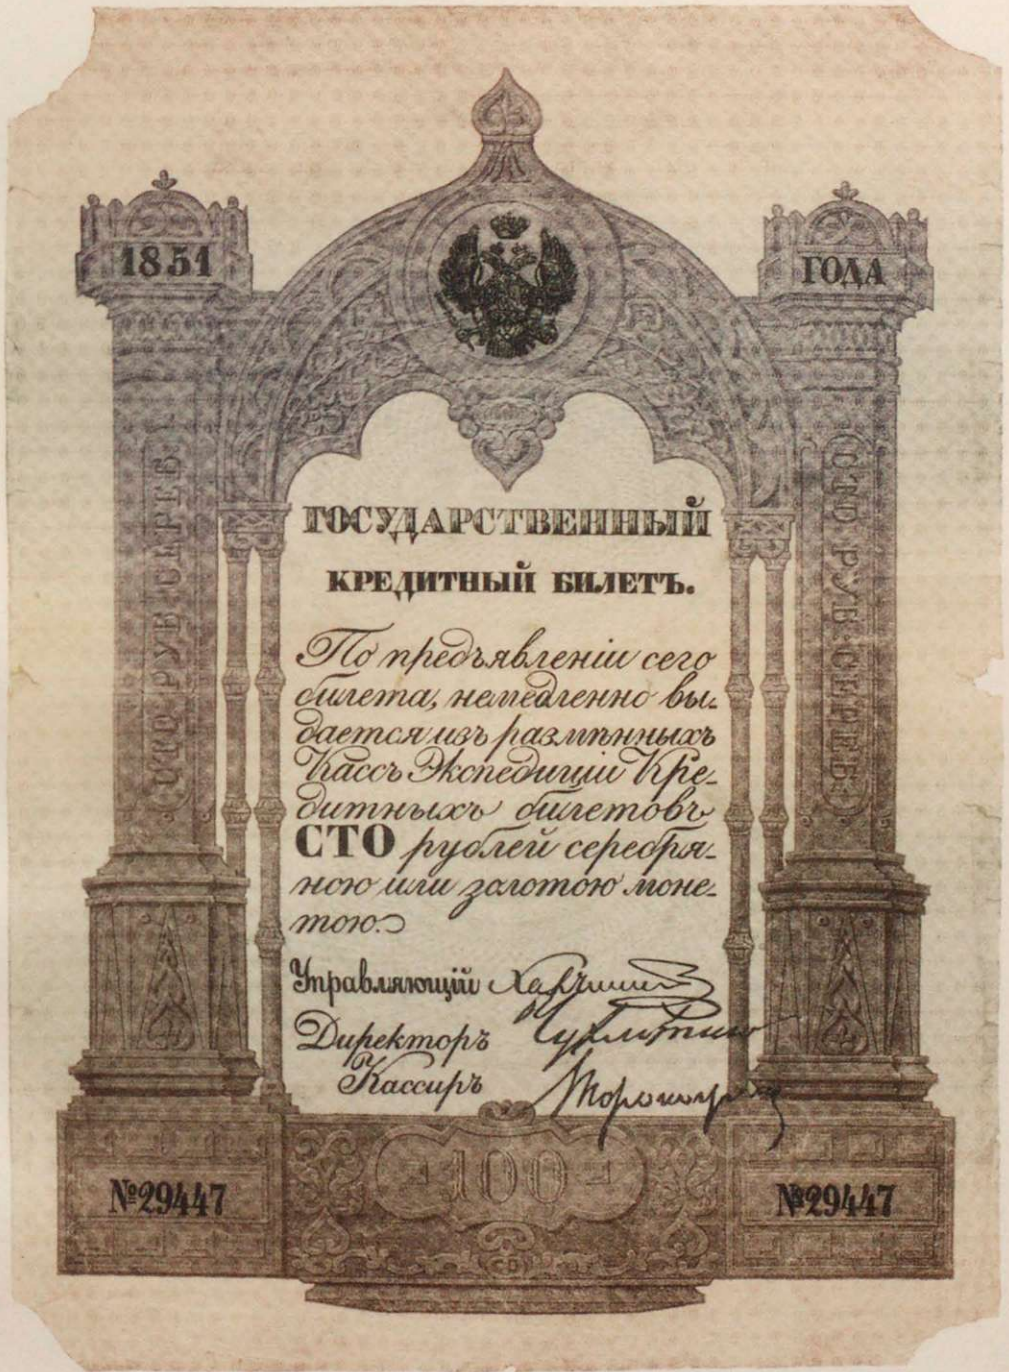 1851
ГОДА
СТО РУБ СЕРЕБ
СТО РУБ СЕРЕБ
ГОСУДАРСТВЕННЫЙ
КРЕДИТНЫЙ БИЛЕТЪ.
По предъявленіи сего
билета, немедленно вы-
дается изъ размѣнныхъ
Кассъ Экспедиціи Кре-
дитныхъ билетовъ
СТО рублей серебря-
ною или золотою моне-
тою.
Управляющій
Директоръ
Кассиръ
100
№29447
№29447